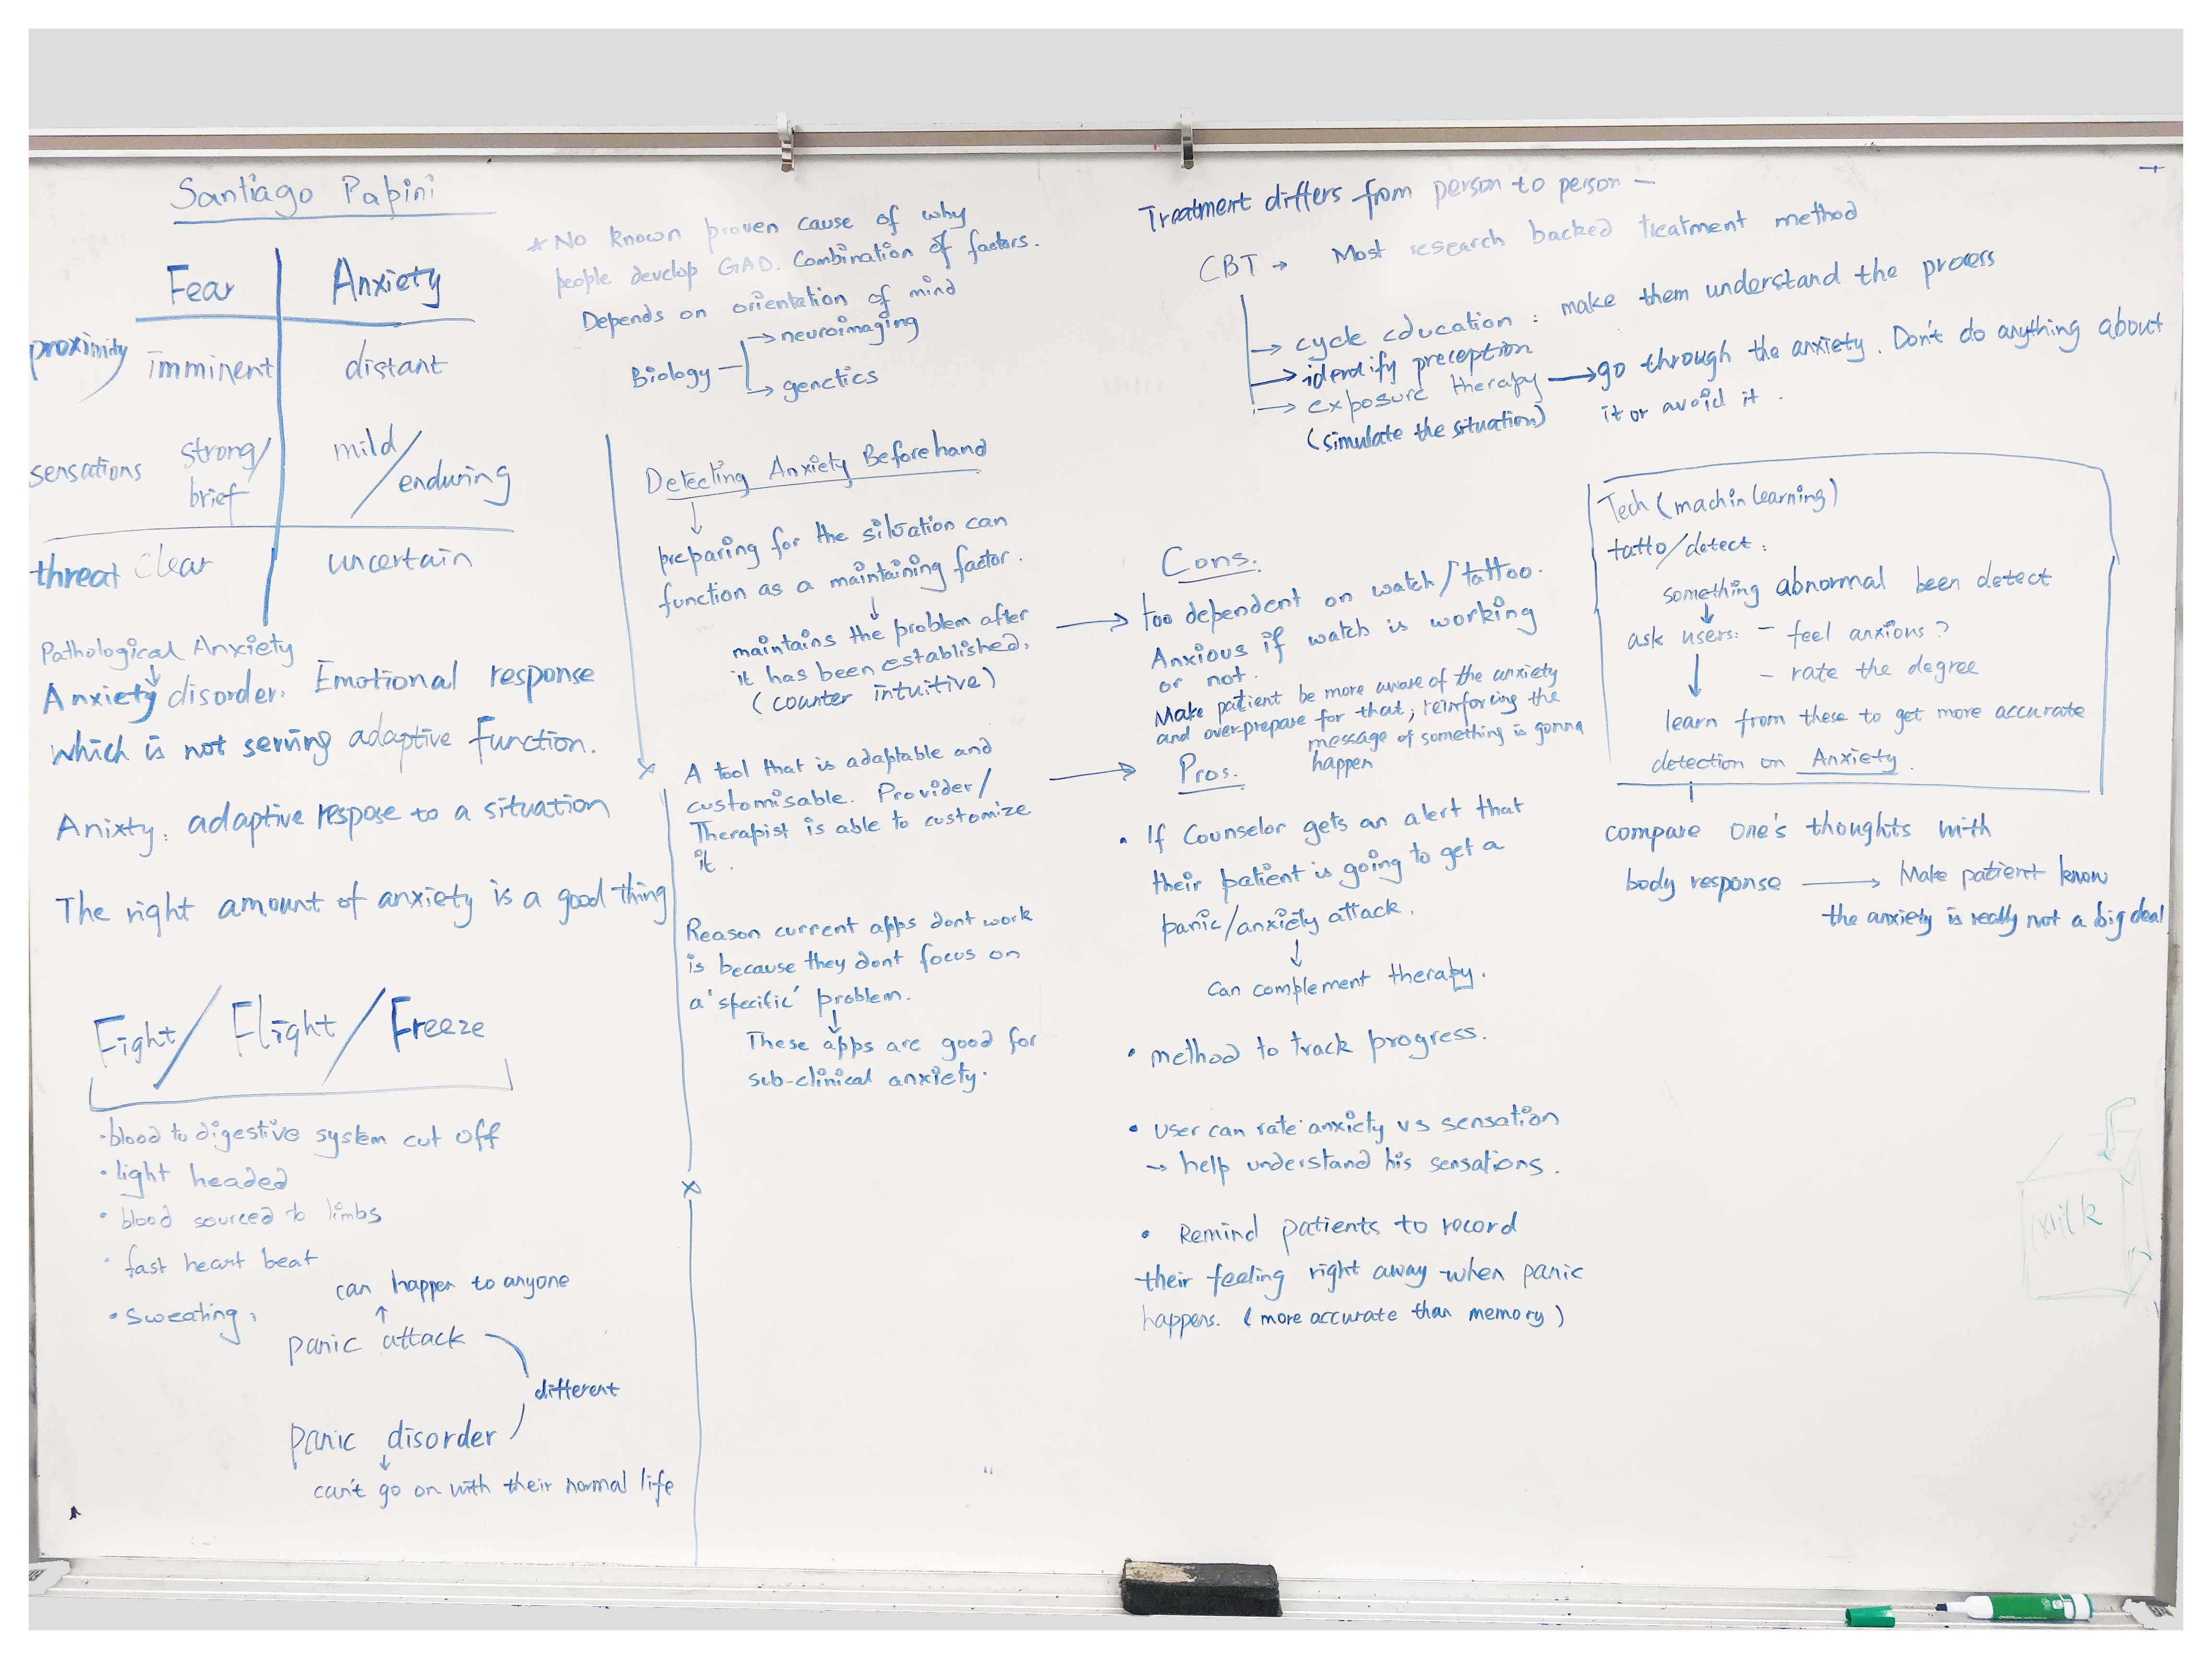 Santiago Papini
Fear Anxiety
proximity imminent distant
sensations strong/ mild/
brief enduring
threat clear uncertain
Pathological Anxiety
Anxiety disorder: Emotional response
which is not serving adaptive function.
Anixty: adaptive respose to a situation
The right amount of anxiety is a good thing
Fight/Flight/Freeze
• blood to digestive system cut off
• light headed
• blood sourced to limbs
• fast heart beat
• sweating,
can happen to anyone
panic attack
different
panic disorder
can't go on with their normal life
* No known proven cause of why
people develop GAD. Combination of factors.
Depends on orientation of mind
→ neuroimaging
Biology
→ genetics
Detecting Anxiety Beforehand
preparing for the situation can
function as a maintaining factor.
maintains the problem after
it has been established.
(counter intuitive)
A tool that is adaptable and
customisable. Provider/
Therapist is able to customize
it.
Reason current apps dont work
is because they dont focus on
a 'specific' problem.
These apps are good for
sub-clinical anxiety.
Treatment differs from person to person –
CBT → Most research backed treatment method
→ cycle education : make them understand the process
→ identify preception
→ exposure therapy → go through the anxiety. Don't do anything about
(simulate the situation) it or avoid it.
Cons.
→ too dependent on watch/tattoo.
Anxious if watch is working
or not.
Make patient be more aware of the anxiety
and overprepare for that; reinforcing the
message of something is gonna
happen
→ Pros.
• If Counselor gets an alert that
their patient is going to get a
panic/anxiety attack.
can complement therapy.
• method to track progress.
• user can rate anxiety vs sensation
→ help understand his sensations.
• Remind patients to record
their feeling right away when panic
happens. (more accurate than memory)
Tech (machin learning)
tatto/detect:
something abnormal been detect
ask users: – feel anxious?
– rate the degree
learn from these to get more accurate
detection on Anxiety.
compare one's thoughts with
body response → Make patient know
the anxiety is really not a big deal
Milk